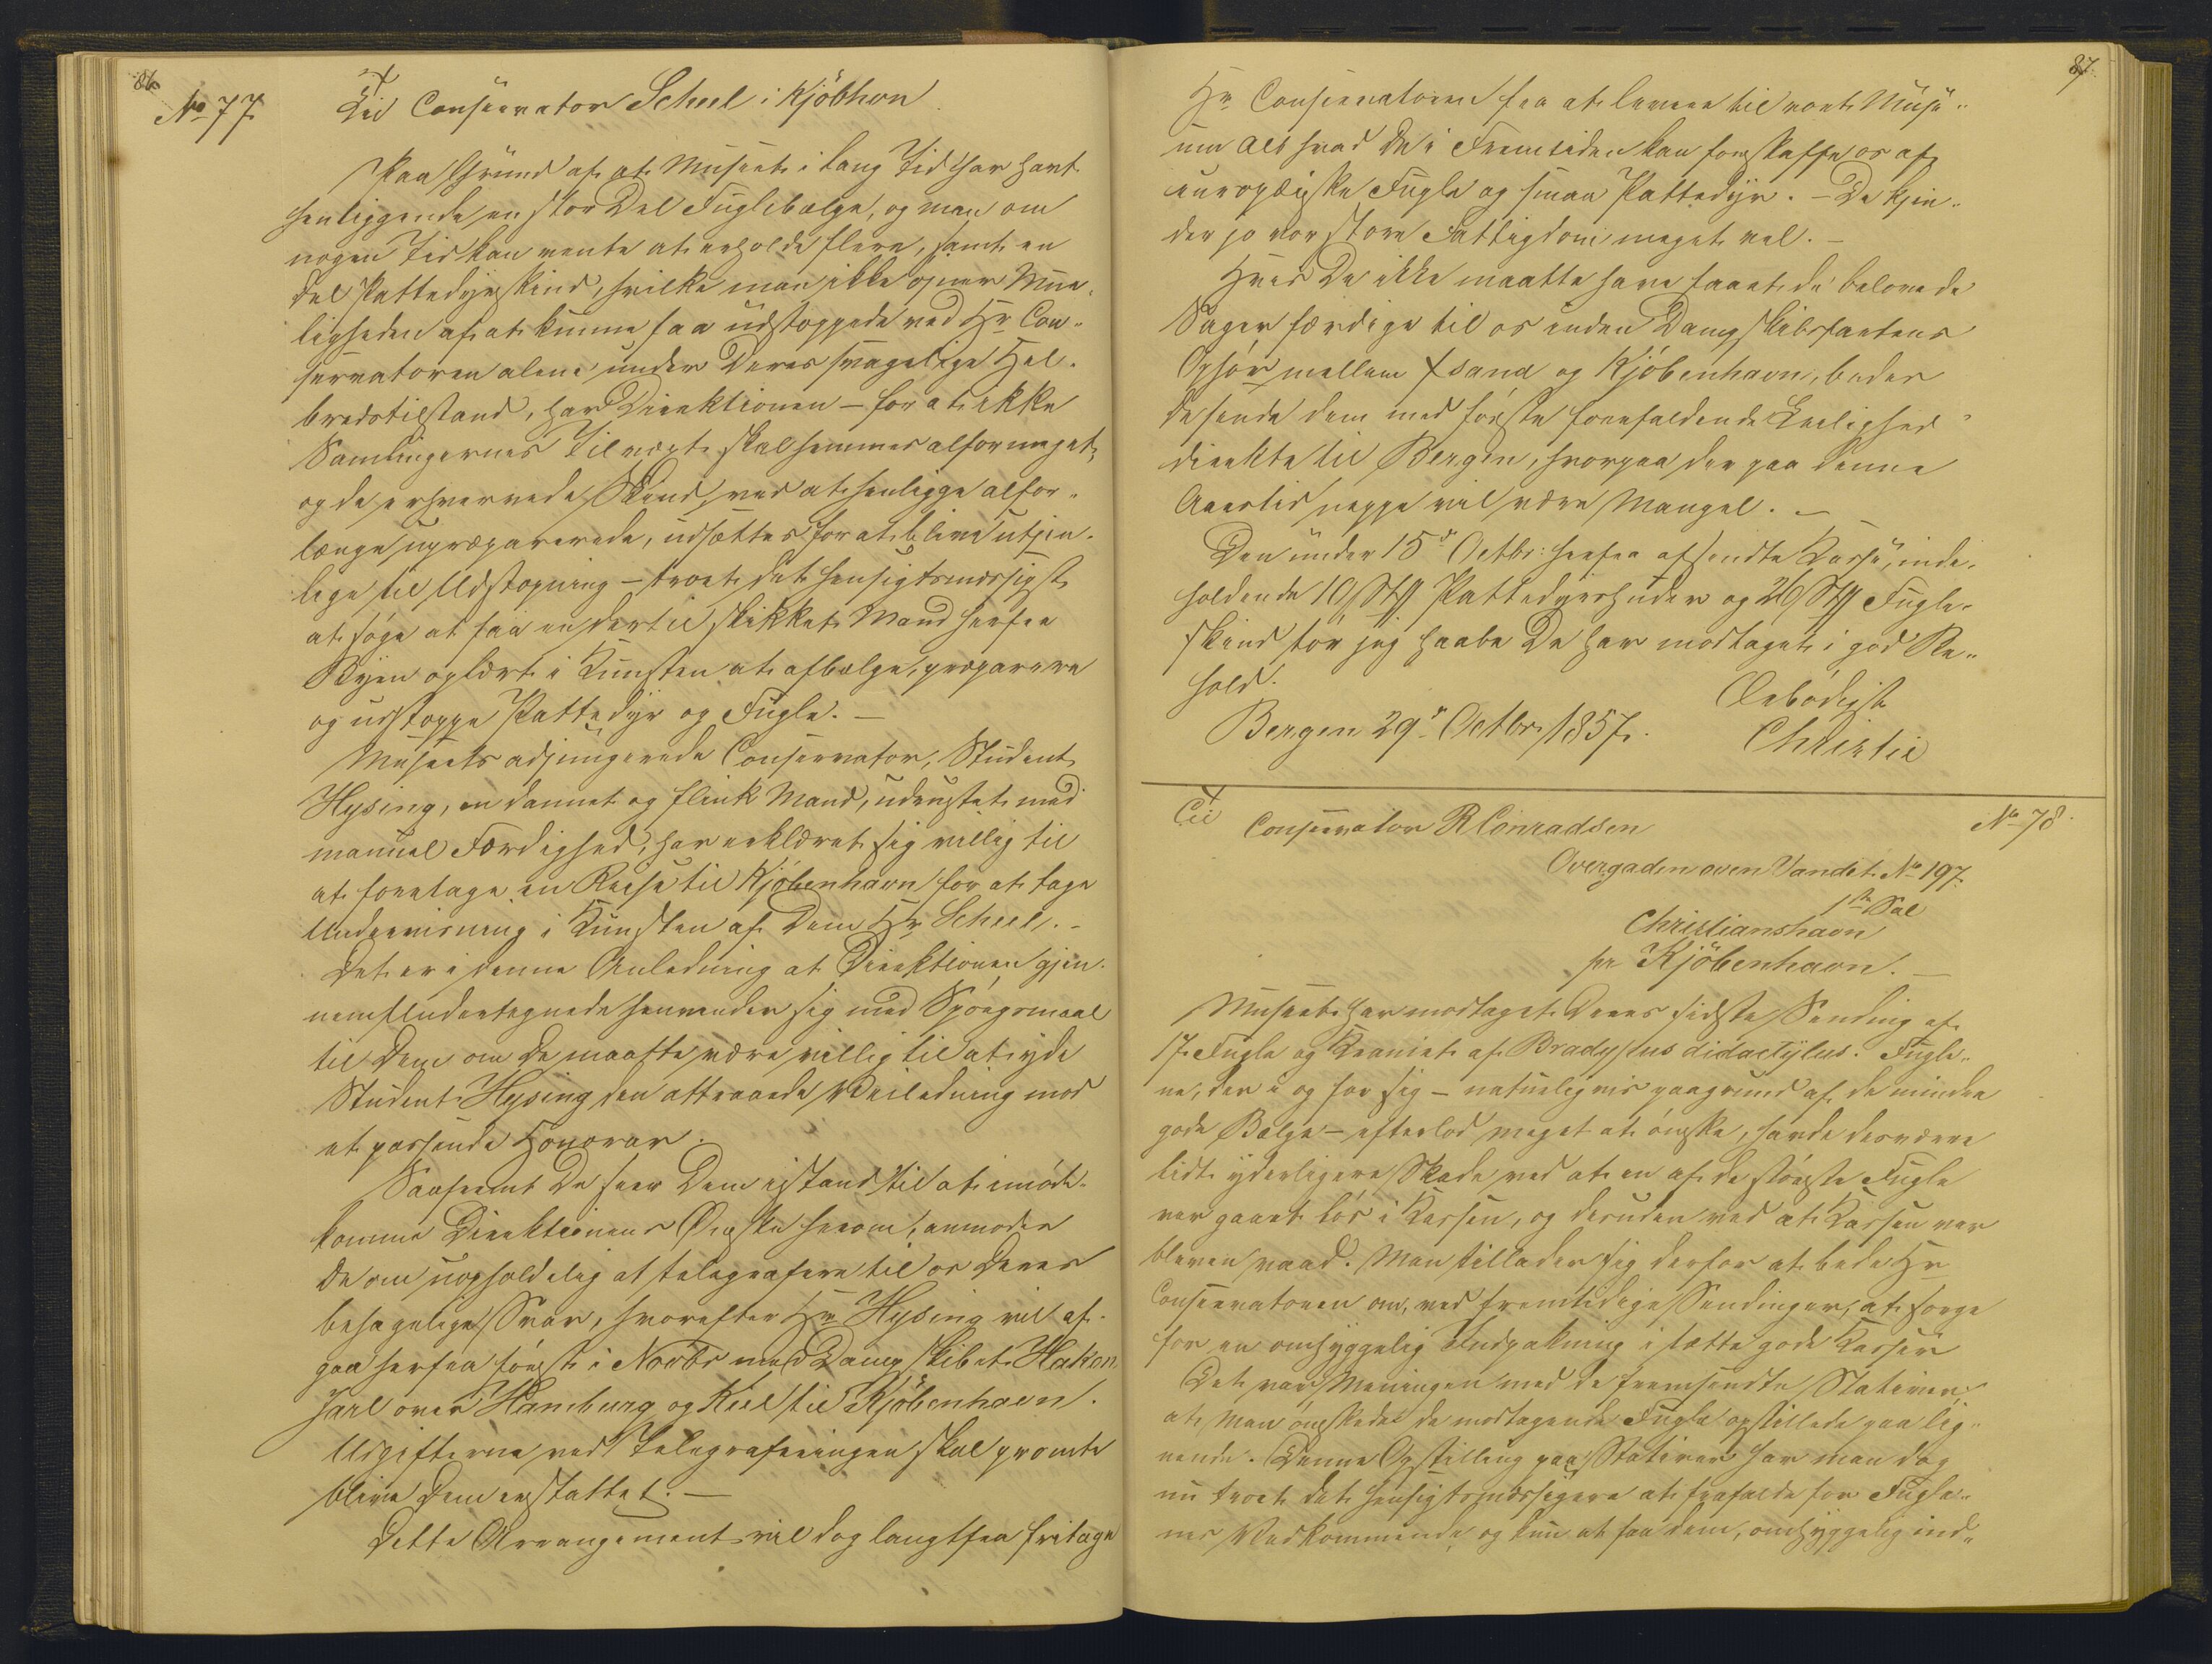 86.
No 77.
Til Conservator Scheel i Kjöbhvn
Paa Grund af at Museet i lang Tid har havt
henliggende en stor Del Fuglebælge, og man om
nogen Tid kan vente at erholde flere, samt en
Del Pattedyrskind, hvilke man ikke øiner Mue-
ligheden af at kunne faa udstoppede ved Hr Con-
servatoren alene under Deres svagelige Hel-
bredstilstand, har Direktionen – for at ikke
Samlingernes Tilvæxt skal hemmes alfor meget,
og de erhvervede Skind, ved at henligge alfor-
længe upræparerede, udsættes for at blive utjen-
lige til Udstopning – troet det hensigtsmæssigst
at søge at faa en dertil skikket Mand herfra
Byen oplært i Kunsten at afbælge, præparere
og udstoppe Pattedyr og Fugle. –
Museets adjungerede Conservator, Student
Hysing, en dannet og flink Mand, udrustet med
manuel Færdighed, har erklæret sig villig til
at foretage en Reise til Kjöbenhavn for at tage
Undervisning i Kunsten af Dem Hr Scheel. –
Det er i denne Anledning at Direktionen gjen-
nem Undertegnede henvender sig med Spørgsmaal
til Dem om De maatte være villig til at yde
Student Hysing den attraaede Veiledning mod
et passende Honorar.
Saafremt De seer Dem istand til at imøde-
komme Direktionens Ønske herom, anmodes
De om uopholdelig at telegrafere til os Deres
behagelige Svar, hvorefter Hr Hysing vil af-
gaa herfra først i Novbr med Dampskibet Hakon
Jarl over Hamburg og Kiel til Kjöbenhavn.
Udgifterne ved Telegraferingen skal promte
blive Dem erstattet. –
Dette Arrangement vil dog langtfra fritage
87.
Hr Conservatoren fra at levere til vort Muse-
um alt hvad De i Fremtiden kan forskaffe os af
europæiske Fugle og smaa Pattedyr. – De kjen-
der jo vor store Fattigdom meget vel. –
Hvis De ikke maatte have faaet de belovede
Sager færdige til os inden Dampskibsfartens
Ophør mellem Xsand og Kjöbenhavn, bedes
De sende dem med første forefaldende Leilighed
direkte til Bergen, hvorpaa der paa denne
Aarstid neppe vil være Mangel. –
Den under 15de Octbr: herfra afsendte Kasse, inde-
holdende 10 Stk Pattedyrhuder og 26 Stk Fugle-
skind tør jeg haabe De har modtaget i god Be-
hold.
Ærbødigst
Bergen 29de Octbr 1857.
Christie
Til
Conservator R Conradsen
No 78.
Overgaden oven Vandet No 197.
1ste Sal
Christianshavn
pr Kjöbenhavn. –
Museet har modtaget Deres sidste Sending af
17 Fugle og Kraniet af Bradypus didactylus. Fugle-
ne, der i og for sig – naturligvis paagrund af de mindre
gode Bælge – efterlod meget at ønske, havde desværre
lidt yderligere Skade ved at en af de største Fugle
var gaaet løs i Kassen, og desuden ved at Kassen var
bleven vaad. Man tillader sig derfor at bede Hr
Conservatoren om, ved fremtidige Sendinger, at sørge
for en omhyggelig Indpakning i tætte gode Kasser
Det var Meningen med de fremsendte Stativer,
at man ønskede de modtagende Fugle opstillede paa lig-
nende. Denne Opstilling paa Stativer har man dog
nu troet det hensigtsmæssigere at frafalde for Fugle-
nes Vedkommende, og kun at faa dem, omhyggelig ind-